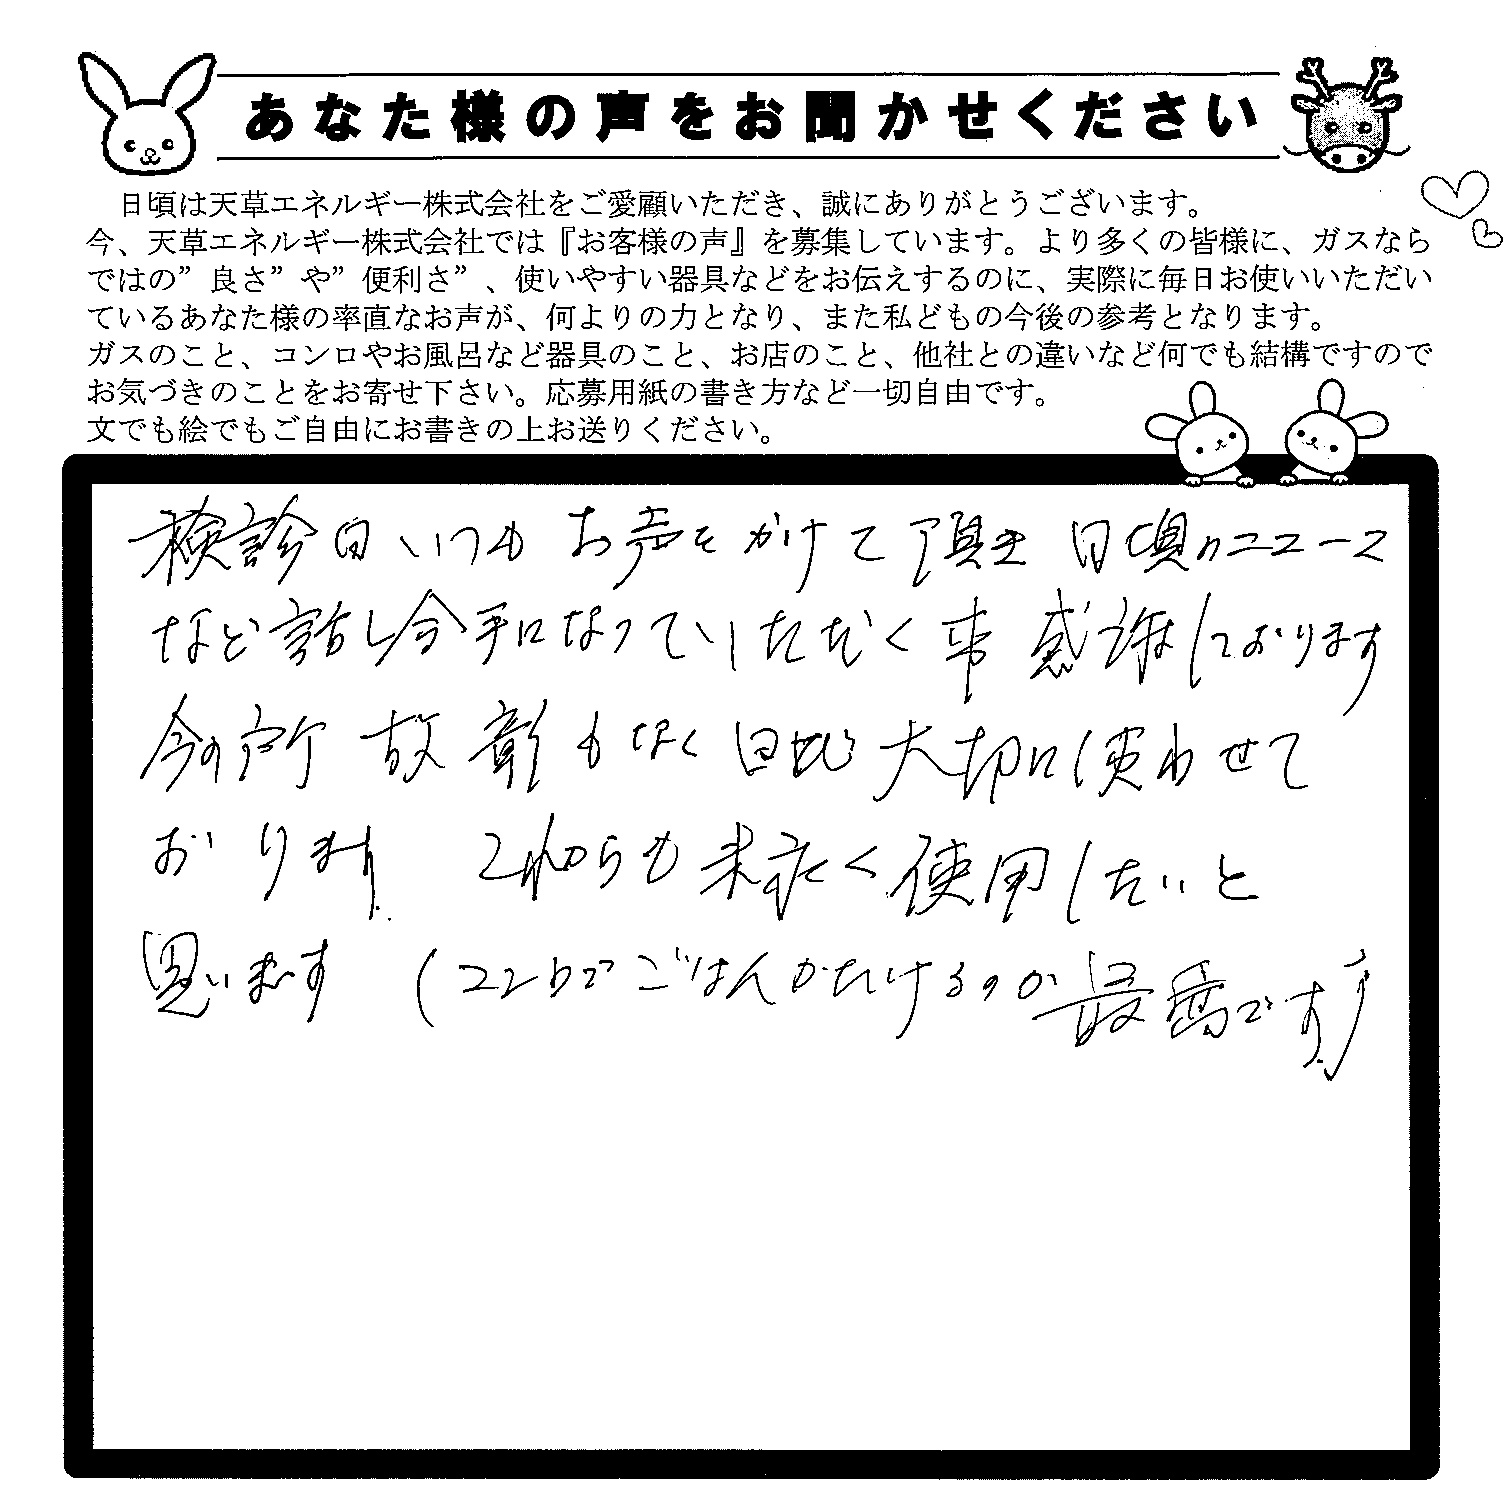 あなた様の声をお聞かせください
日頃は天草エネルギー株式会社をご愛顧いただき、誠にありがとうございます。
今、天草エネルギー株式会社では『お客様の声』を募集しています。より多くの皆様に、ガスなら
ではの”良さ”や”便利さ”、使いやすい器具などをお伝えするのに、実際に毎日お使いいただい
ているあなた様の率直なお声が、何よりの力となり、また私どもの今後の参考となります。
ガスのこと、コンロやお風呂など器具のこと、お店のこと、他社との違いなど何でも結構ですので
お気づきのことをお寄せ下さい。応募用紙の書き方など一切自由です。
文でも絵でもご自由にお書きの上お送りください。
検診日いつも お声をかけて頂き 日頃のニュース
など話し合手になっていただく事 感謝しております
今の所 故彰もなく 日頃 大切に使わせて
おります これからも末永く使用したいと
思います (コンロでごはんかたけるのが最高です)